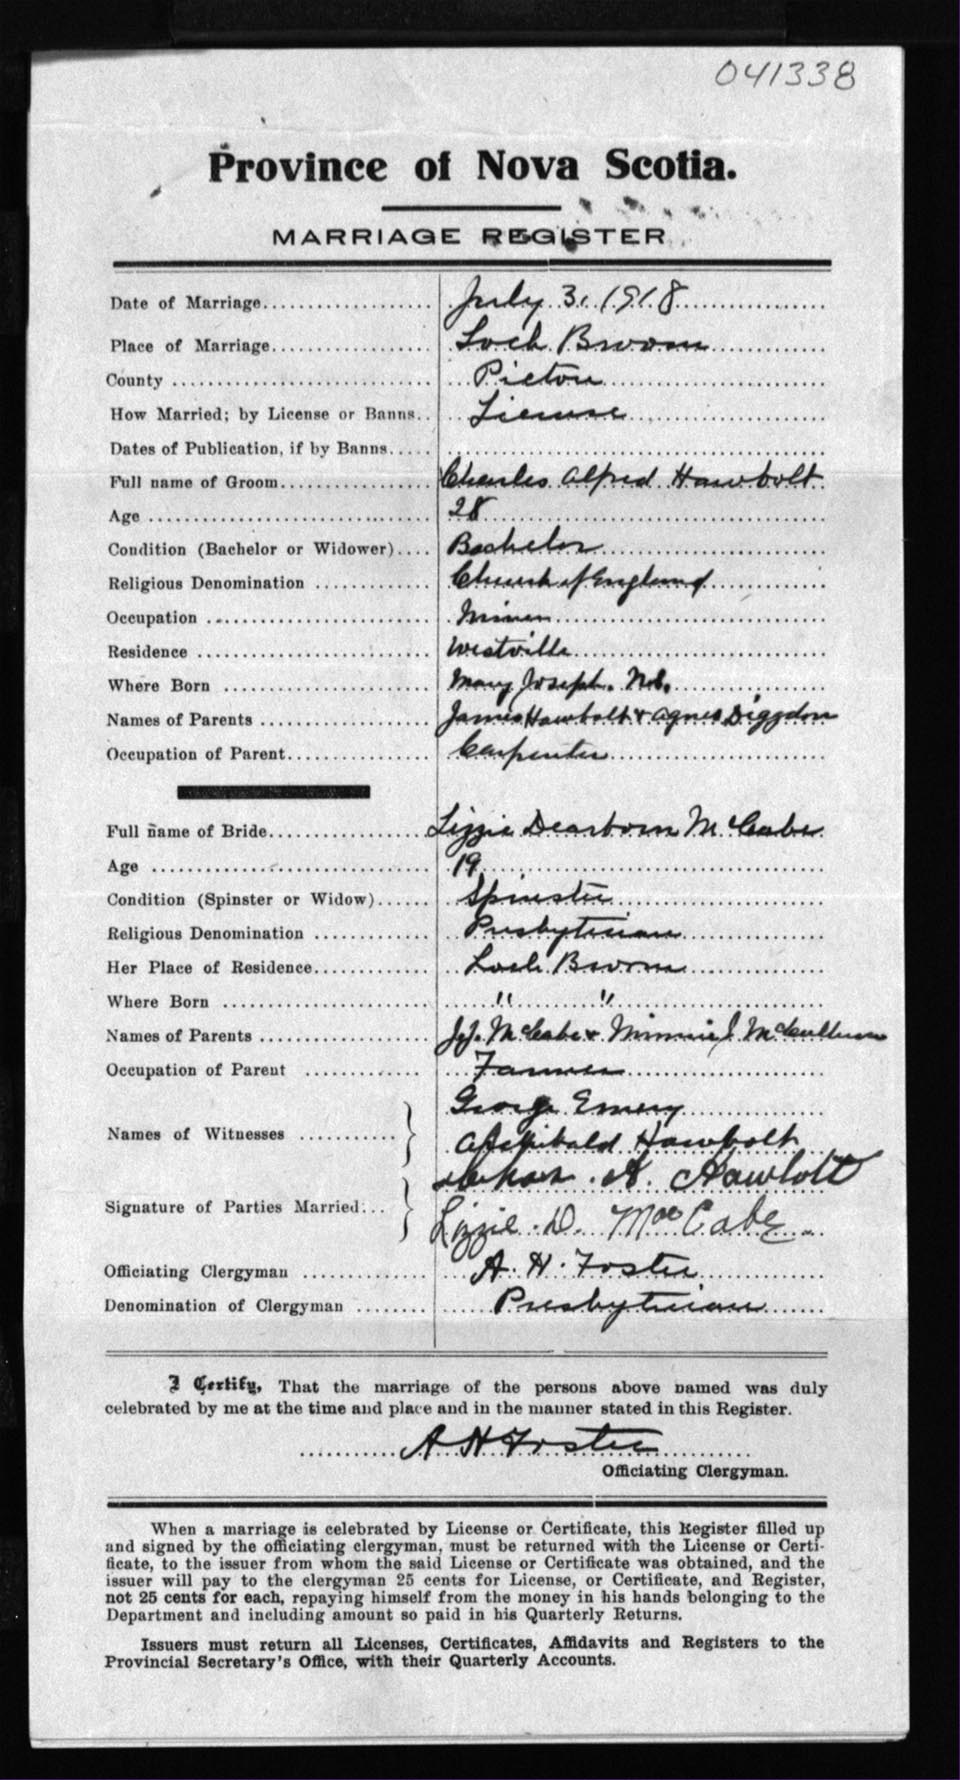 041338
Province of Nova Scotia.
MARRIAGE REGISTER
Date of Marriage July 3, 1918
Place of Marriage Loch Broom
County Pictou
How Married; by License or Banns License
Dates of Publication, if by Banns
Full name of Groom Charles Alfred Hawbolt
Age 28
Condition (Bachelor or Widower) Bachelor
Religious Denomination Church of England
Occupation Miner
Residence Westville
Where Born Mary Joseph. N.S.
Names of Parents James Hawbolt & Agnes Diggdon
Occupation of Parent Carpenter
Full name of Bride Lizzie Dearborn McCabe
Age 19
Condition (Spinster or Widow) Spinster
Religious Denomination Presbyterian
Her Place of Residence Loch Broom
Where Born " "
Names of Parents J.J. McCabe & Minnie J McCullum
Occupation of Parent Farmer
George Emery
Names of Witnesses
Archibald Hawbolt
A. Hawbolt
Signature of Parties Married
Lizzie. D. MacCabe
Officiating Clergyman A. H. Foster
Denomination of Clergyman Presbyterian
I Certify, That the marriage of the persons above named was duly
celebrated by me at the time and place and in the manner stated in this Register.
A H Foster
Officiating Clergyman.
When a marriage is celebrated by License or Certificate, this Register filled up
and signed by the officiating clergyman, must be returned with the License or Certi-
ficate, to the issuer from whom the said License or Certificate was obtained, and the
issuer will pay to the clergyman 25 cents for License, or Certificate, and Register,
not 25 cents for each, repaying himself from the money in his hands belonging to the
Department and including amount so paid in his Quarterly Returns.
Issuers must return all Licenses, Certificates, Affidavits and Registers to the
Provincial Secretary's Office, with their Quarterly Accounts.